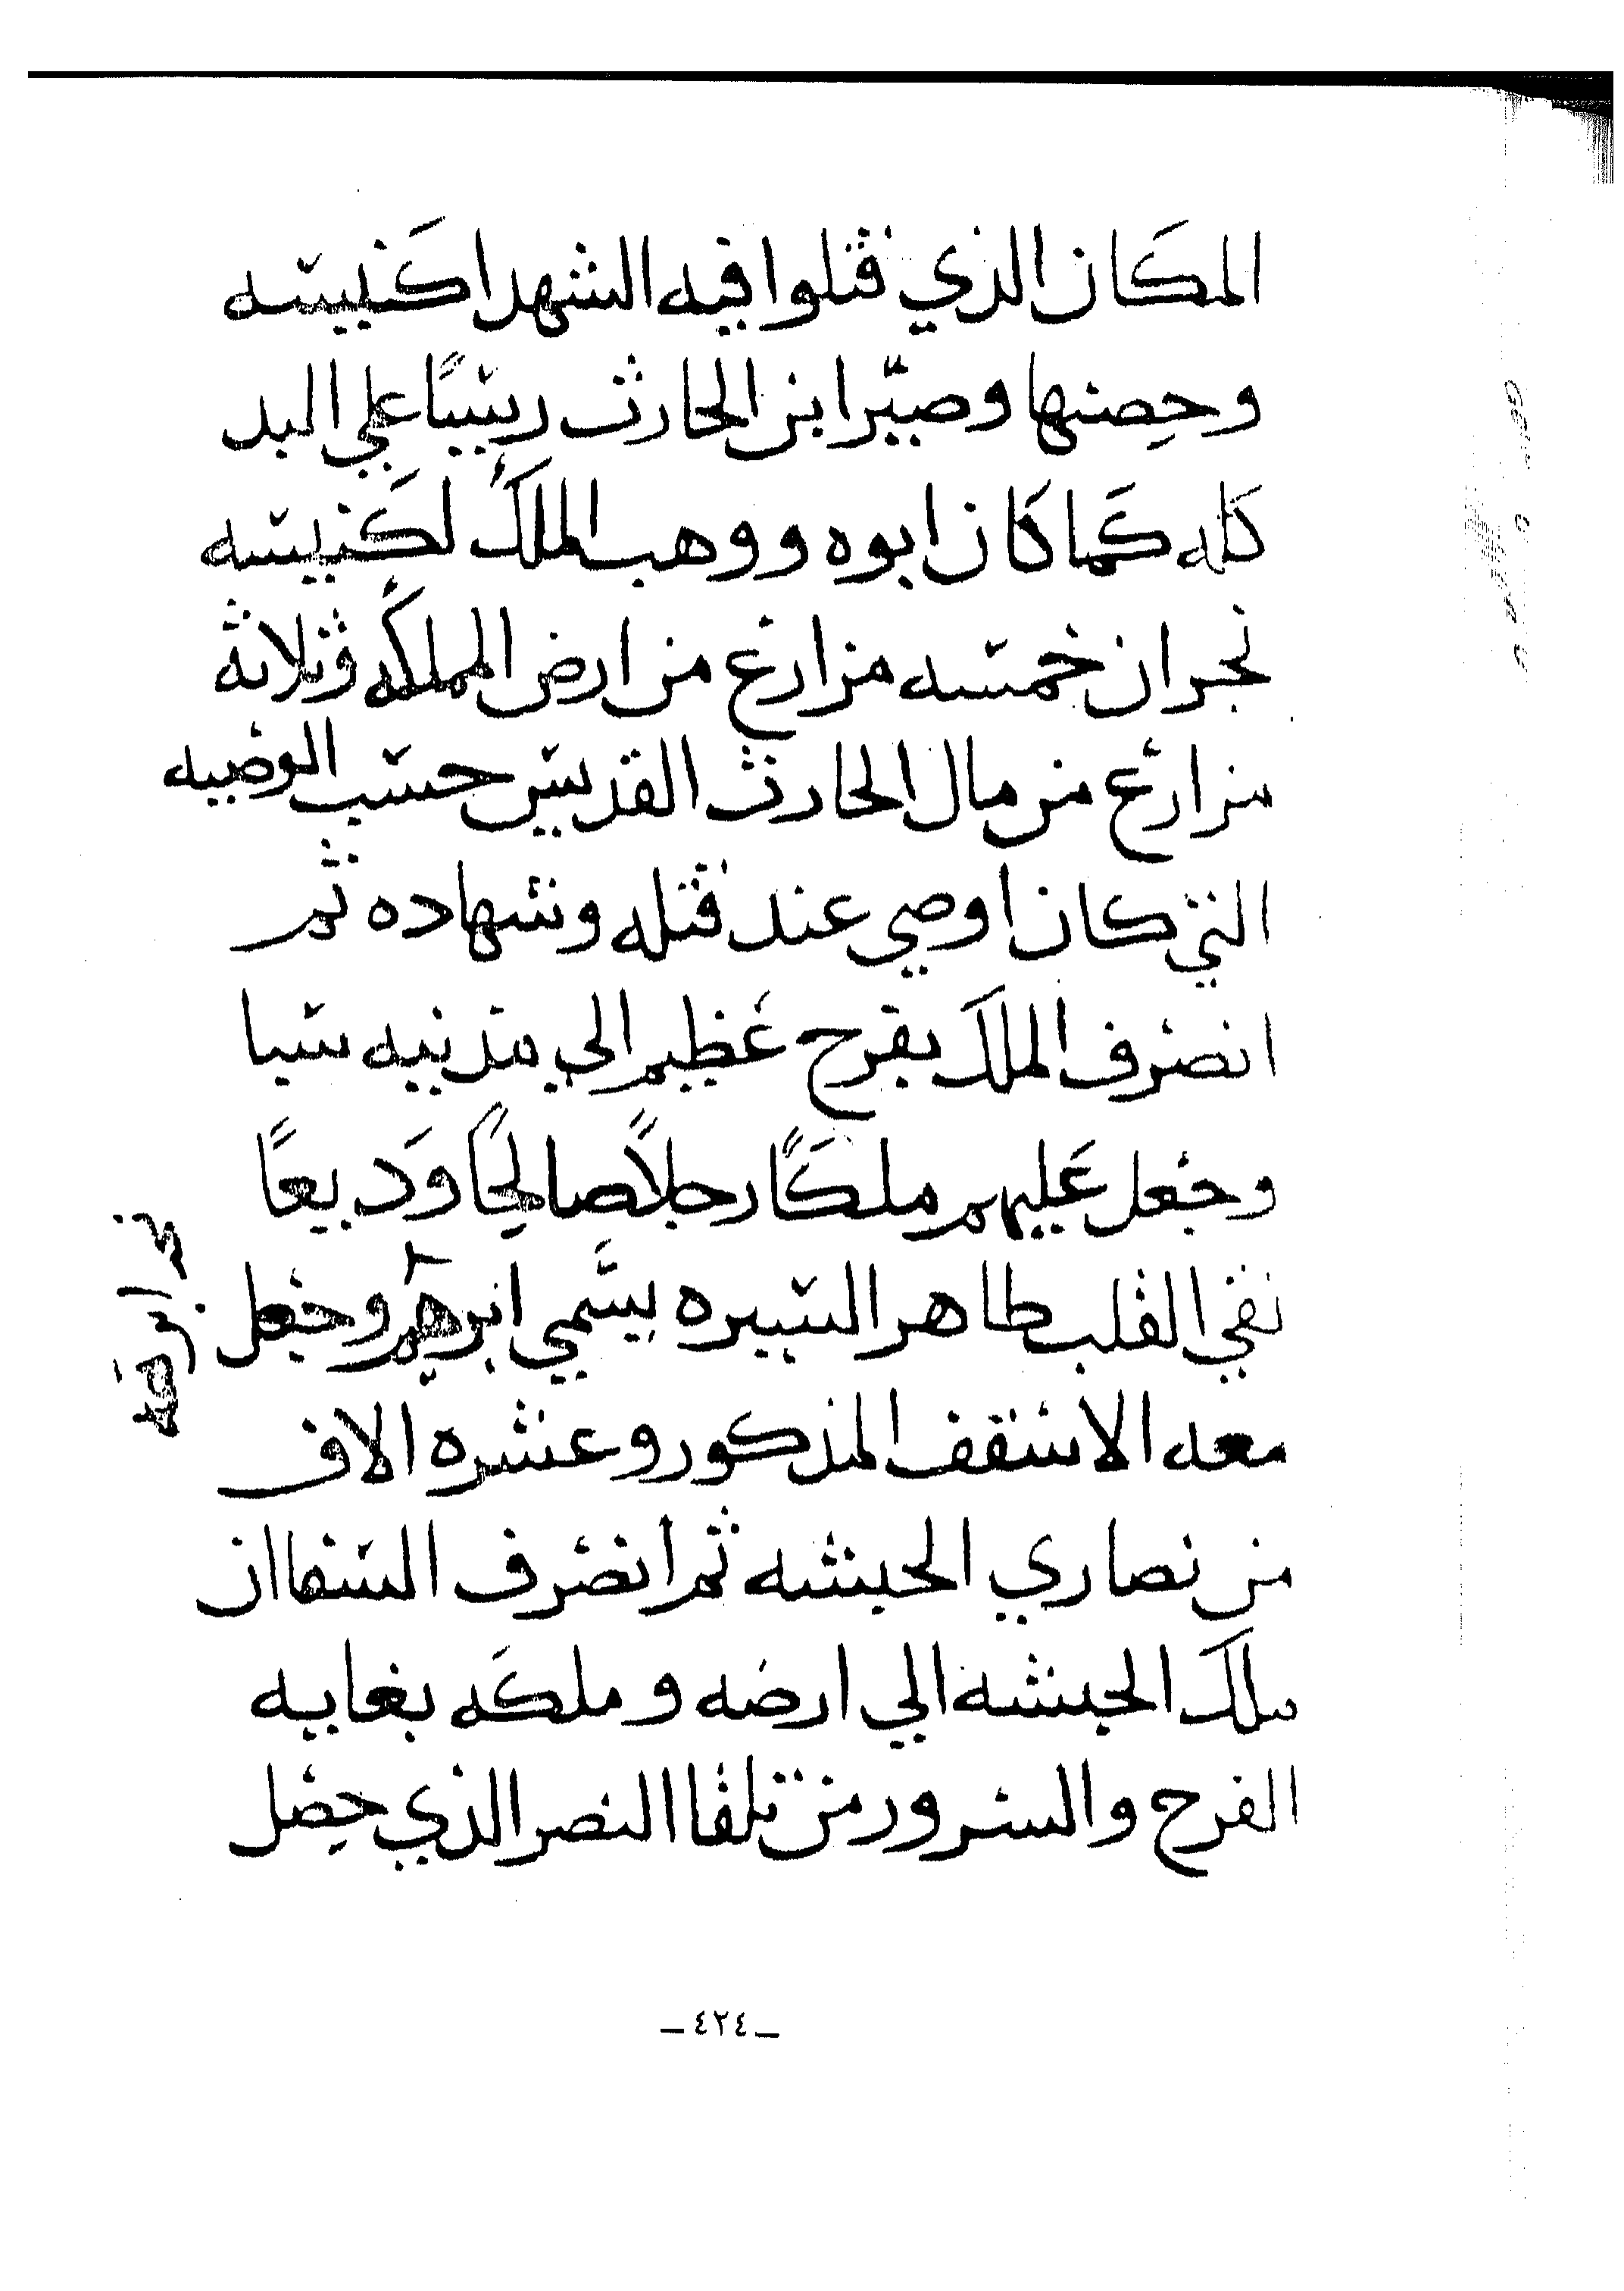 المكان الذي قتلوا فيه الشهدا كنيسه
وحصنها وصيّر ابن الحارث رييسًا علي البلد
كله كما كان ابوه ووهب الملك لكنيسه
نجران خمسه مزارع من ارض المملكه وثلاثة
مزارع من مال الحارث القديس حسب الوصيه
التي كان اوصي عند قتله وشهاده ثم
انصرف الملك بفرح عظيم الي مدينه سبا
وجعل عليهم ملكًا رجلاً صالحًا وَديعًا
نقي القلب طاهر السيره يسَمي ابرهيم وجعل
معه الاسقف المذكور وعشره الاف
من نصاري الحبشه ثم انصرف السفاان
ملك الحبشه الي ارضه وملكه بغايه
الفرح والسرور من تلقا النصر الذي حصل
ـ ٤٢٤ ـ